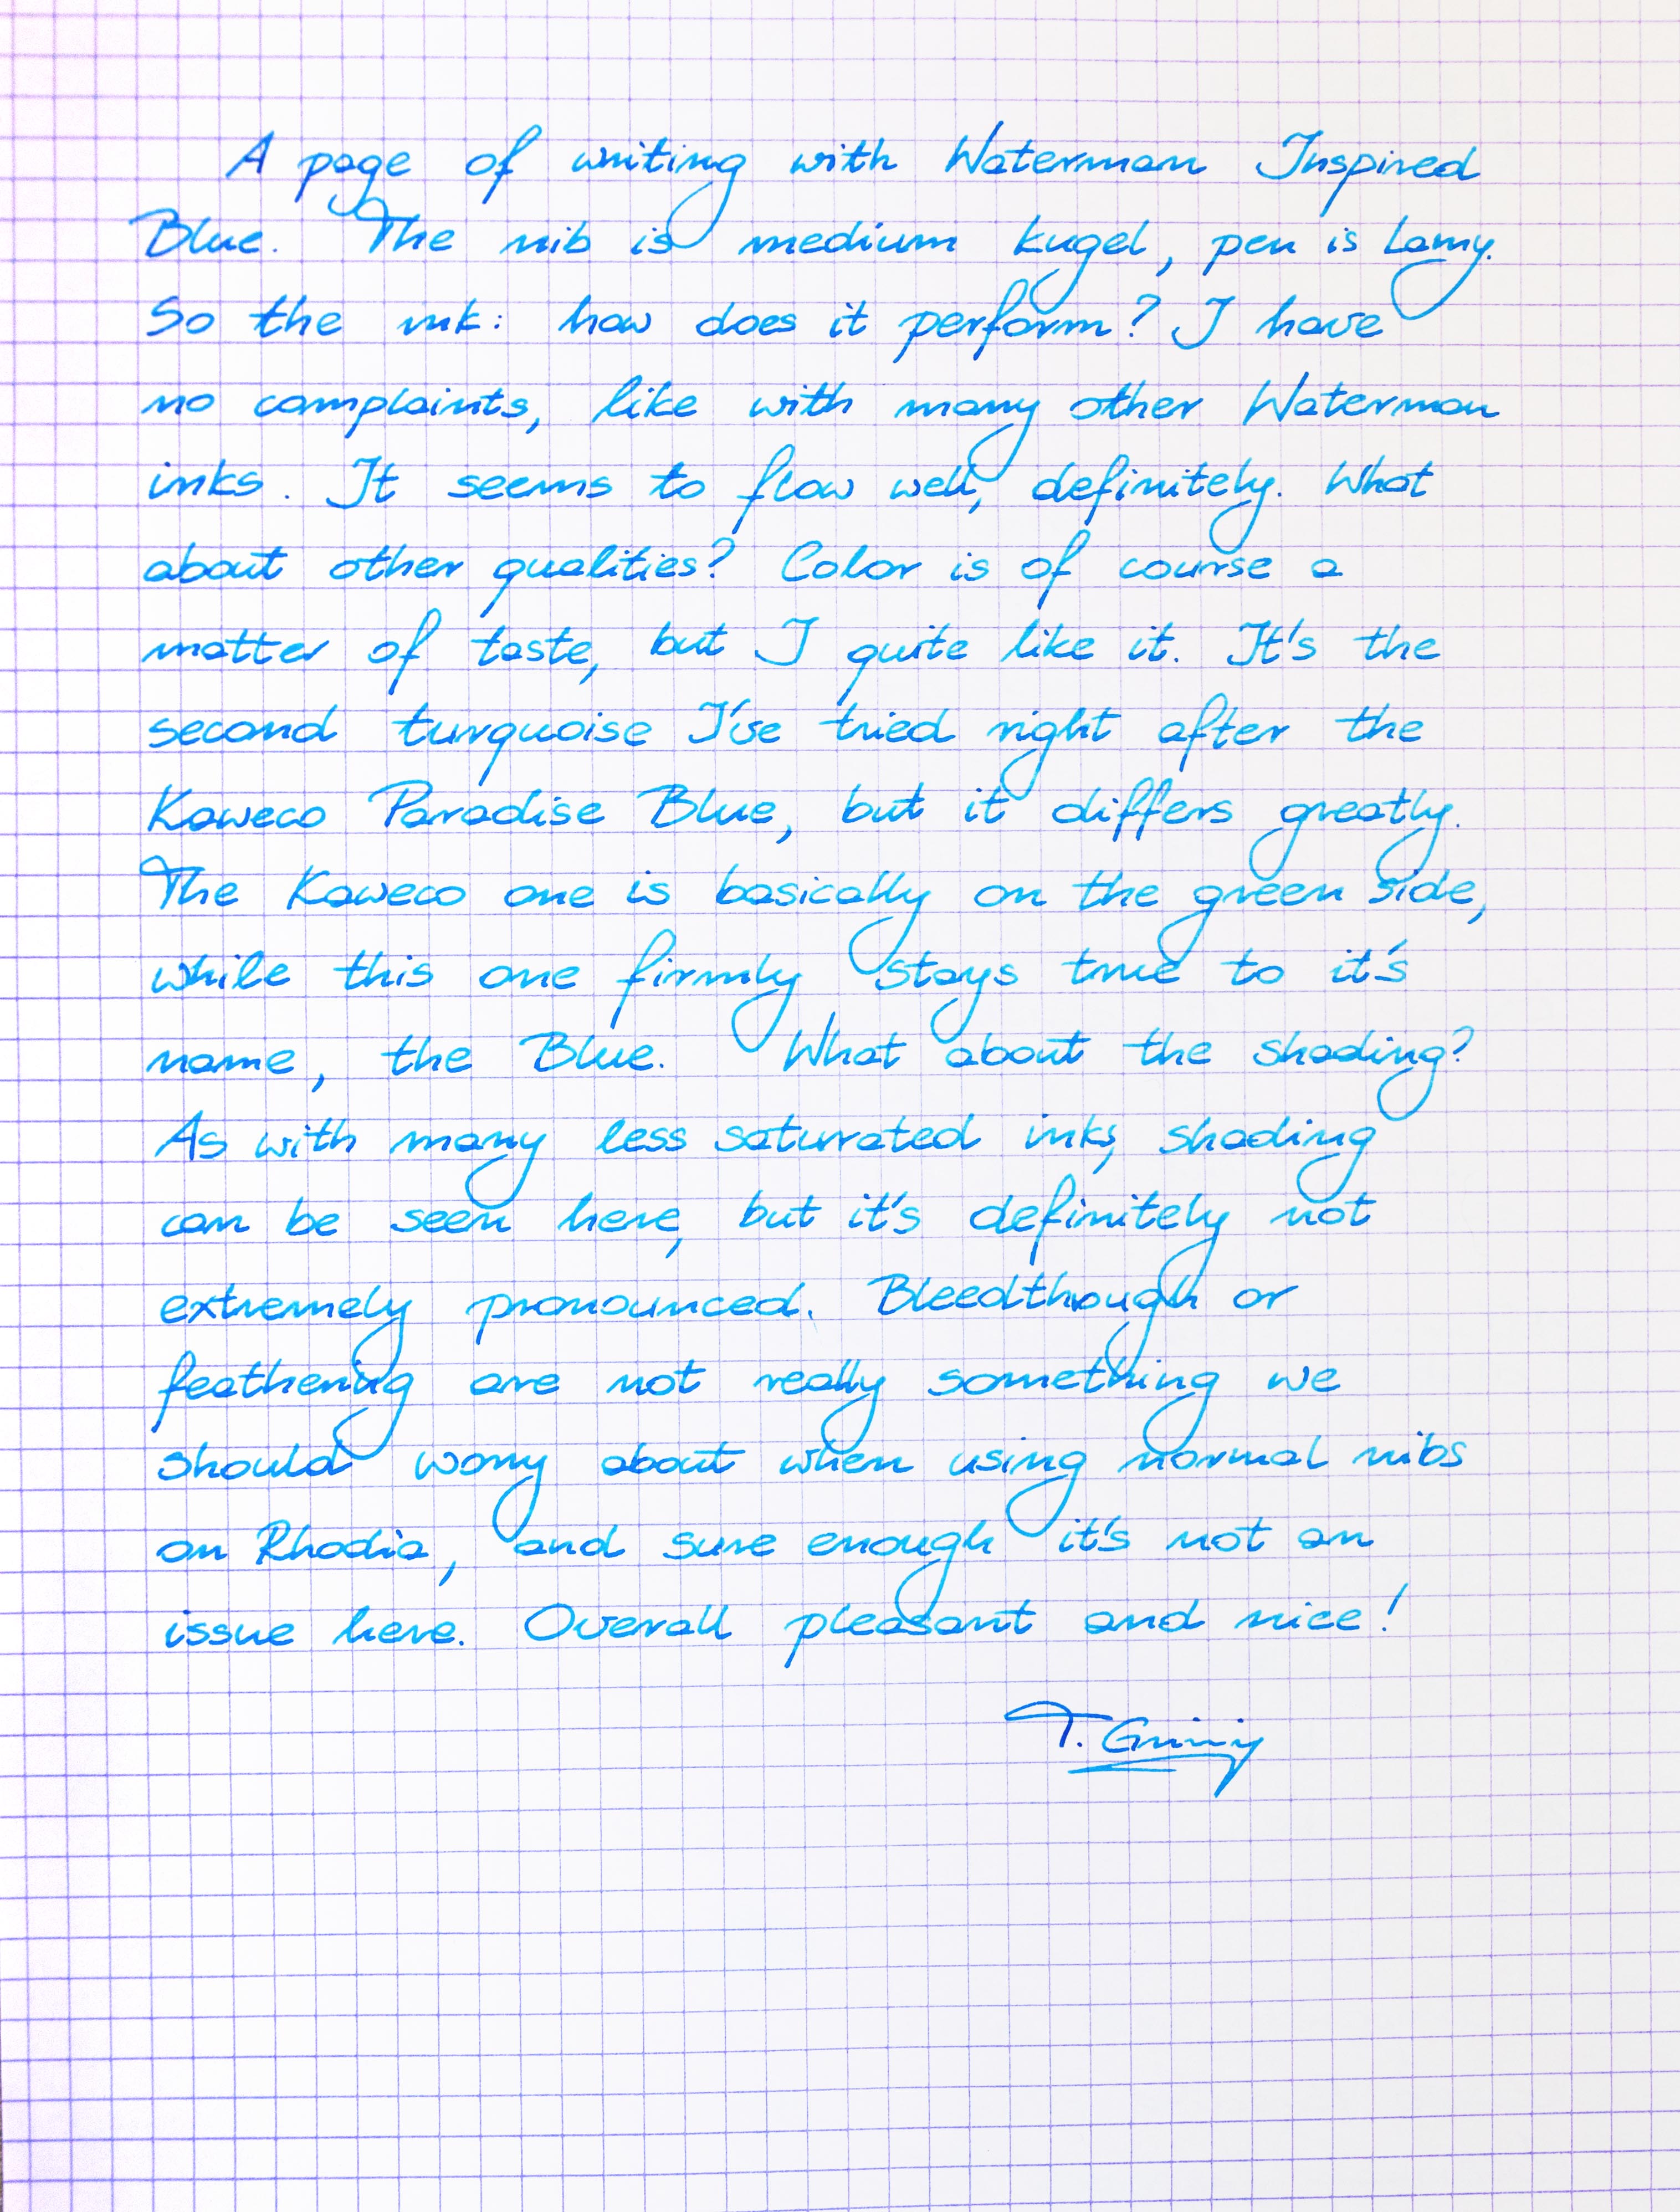 A page of writing with Waterman Inspired
Blue. The nib is medium kugel, pen is Lamy.
So the ink: how does it perform? I have
no complaints, like with many other Waterman
inks. It seems to flow well, definitely. What
about other qualities? Color is of course a
matter of taste, but I quite like it. It's the
second turquoise I've tried right after the
Kaweco Paradise Blue, but it differs greatly.
The Kaweco one is basically on the green side,
while this one firmly stays true to it's
name, the Blue. What about the shading?
As with many less saturated inks, shading
can be seen here, but it's definitely not
extremely pronounced. Bleedthough or
feathering are not really something we
should worry about when using normal nibs
on Rhodia, and sure enough it's not an
issue here. Overall pleasant and nice!
T.